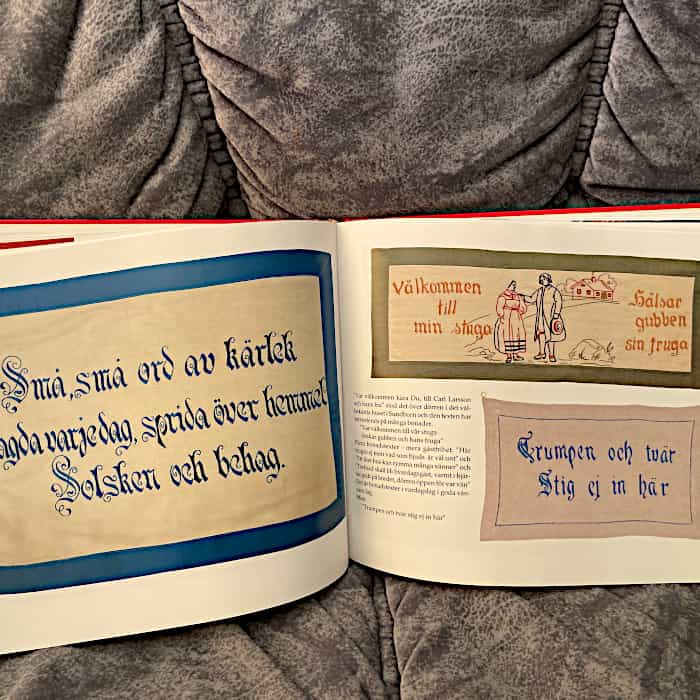 Små, små ord av kärlek
varjedag, sprida över hemmet
Solsken och behag.
Välkommen
till
min stuga
Hälsar
gubben
sin fruga
"Var välkommen kära Du, till Carl Larsson
och hans fru" stod det över dörren i det väl-
bekanta huset i Sundborn och den texten har
på många bonader.
"Var välkommen till vår stuga
önskar gubben och hans fruga"
bonadstexter – mera gästfrihet: "Här
den öppen för var vän"
är bonadstexter i vardagslag i goda vän-
ners lag.
Men
"Trumpen och tvär stig ej in här"
Trumpen och tvär
Stig ej in här